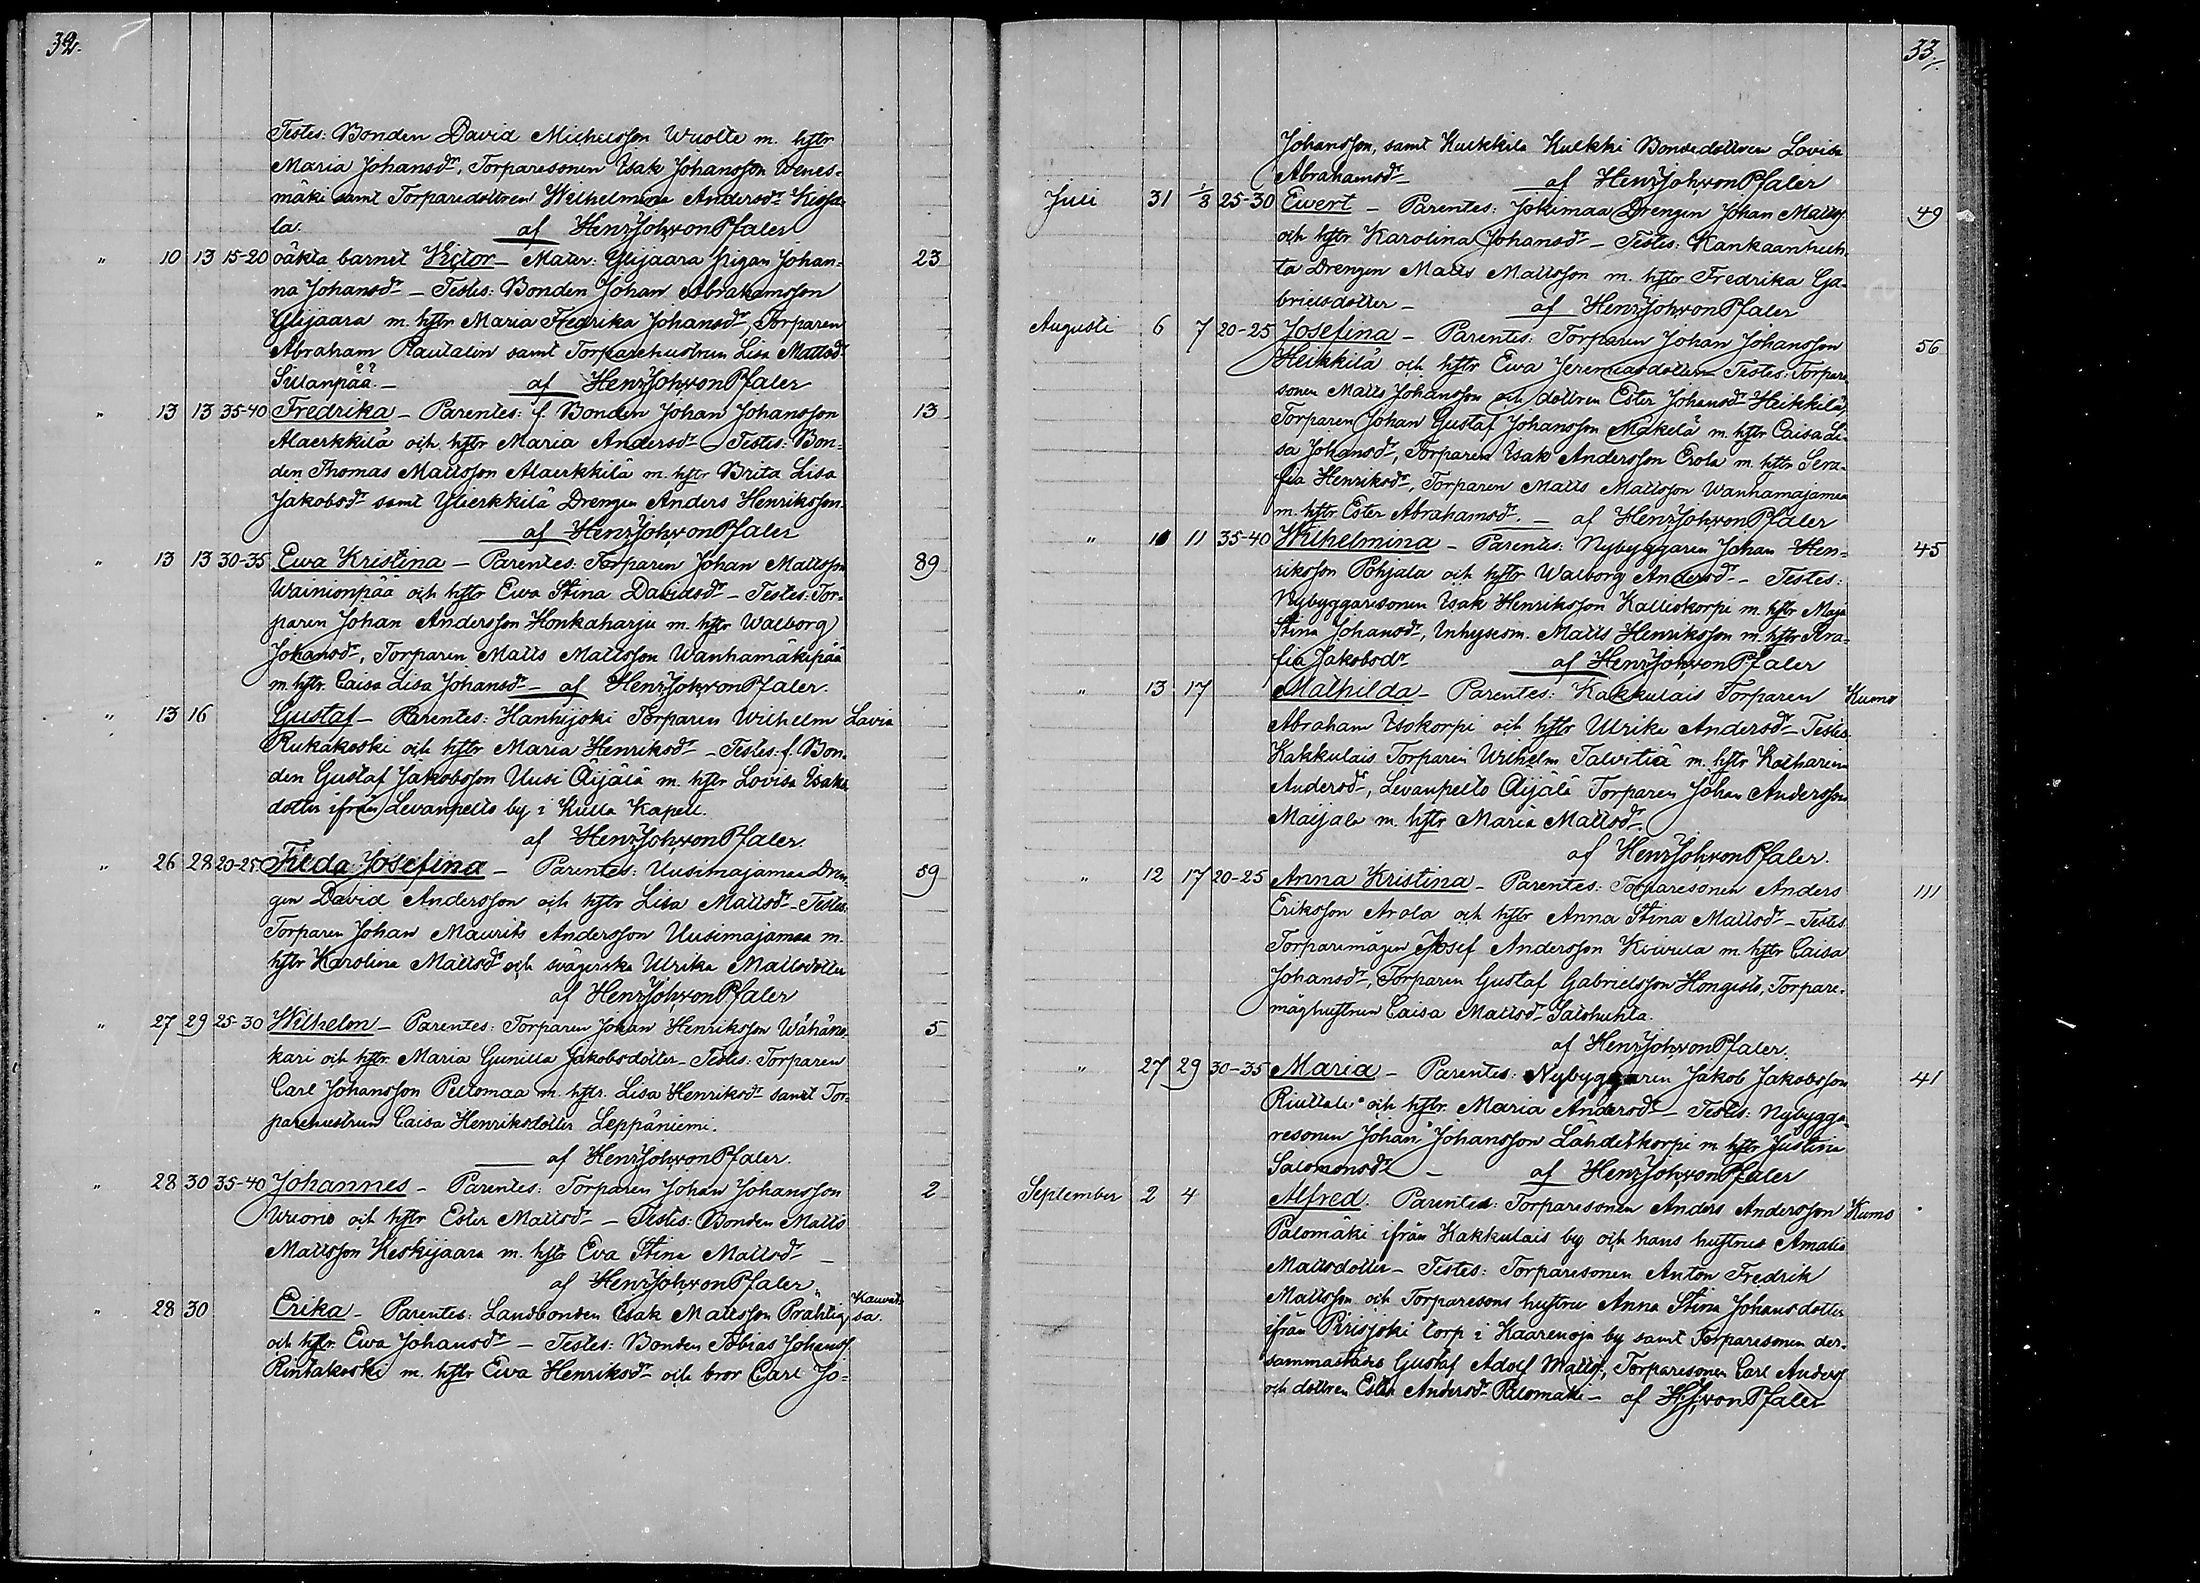 32.
Testes: Bonden David Michelsson Wuolte m. hstr
Maria Johansdr, Torparesonen Isak Johansson Wenes-
mäki samt Torparedottren Wilhelmina Andersdr Kissa-
la. af HenrJoh,vonPfaler
" 10 13 15-20 oäkta barnet Victor - Mater: Ylijaara Pigan Johan- 23
na Johansdr - Testes: Bonden Johan Abrahamsson
Ylijaara m. hstr Maria Fredrika Johansdr, Torparen
Abraham Rautalin samt Torparehustrun Lisa Mattsdr
Sillanpää - af HenrJoh,vonPfaler
" 13 13 35-40 Fredrika - Parentes: f. Bonden Johan Johansson 13
Alaerkkilä och hstr Maria Andersdr - Testes: Bon-
den Thomas Mattsson Alaerkkilä m. hstr Brita Lisa
Jakobsdr samt Ylierkkilä Drengen Anders Henriksson.
af HenrJoh,vonPfaler
" 13 13 30-35 Ewa Kristina - Parentes: Torparen Johan Mattsson 89
Wainionpää och hstr Ewa Stina Davidsdr - Testes: Tor-
paren Johan Andersson Honkaharju m. hstr Walborg
Johansdr, Torparen Matts Mattsson Wanhamäkipää
m. hstr. Caisa Lisa Johansdr - af HenrJoh,vonPfaler.
" 13 16 Gustaf - Parentes: Hanhijoki Torparen Wilhelm Lavia
Rukakoski och hstr Maria Henriksdr - Testes: f. Bon-
den Gustaf Jakobsson Uusi Äijälä m. hstr Lovisa Isaks
dotter ifrån Levanpelto by i Kulla Kapell.
af HenrJoh,vonPfaler.
" 26 28 20-25 Filda Josefina - Parentes: Uusimajamaa Dren- 59
gen David Andersson och hstr Lisa Mattsdr - Testes:
Torparen Johan Maurits Andersson Uusimajamaa m.
hstr Karolina Mattsdr och svägerska Ulrika Mattsdotter
af HenrJoh,vonPfaler
" 27 29 25-30 Wilhelm - Parentes: Torparen Johan Henriksson Wähäno- 5
kari och hstr. Maria Gunilla Jakobsdotter - Testes: Torparen
Carl Johansson Peltomaa m. hstr. Lisa Henriksdr samt Tor-
parehustrun Caisa Henriksdotter Leppäniemi.
af HenrJoh,vonPfaler.
" 28 30 35-40 Johannes - Parentes: Torparen Johan Johansson 2
Wuorio och hstr Ester Mattsdr - Testes: Bonden Matts
Mattsson Keskijaara m. hstr Eva Stina Mattsdr -
af HenrJoh,vonPfaler
" 28 30 Erika - Parentes: Landbonden Isak Mattsson Prahtig Kauvat-
sa.
och hstr. Ewa Johansdr - Testes: Bonden Tobias Johanss
Rintakoski m. hstr Ewa Henriksdr och bror Carl Jo-
33.
Johansson, samt Kulkkila Kulkki Bondedottren Lovisa
Abrahamsdr - af HenrJoh,vonPfaler
Juli 31 1/8 25-30 Ewert - Parentes: Jokimaa Drengen Johan Mattss 49
och hstr Karolina Johansdr - Testes: Kankaanhuh-
ta Drengen Matts Mattsson m. hstr Fredrika Ga-
brielsdotter - af HenrJoh,vonPfaler
Augusti 6 7 20-25 Josefina - Parentes: Torparen Johan Johansson 56
Heikkilä och hstr Ewa Jeremiasdotter - Testes: Torpare-
sonen Matts Johansson och dottren Ester Johansdr Heikkilä,
Torparen Johan Gustaf Johansson Mäkelä m. hstr Caisa Li-
sa Johansdr, Torparen Isak Andersson Erola m. hstr Sera-
fia Henriksdr, Torparen Matts Mattsson Wanhamajamaa
m. hstr Ester Abrahamsdr. - af HenrJoh,vonPfaler
" 10 11 35-40 Wilhelmina - Parentes: Nybyggaren Johan Hen- 45
riksson Pohjala och hstr Walborg Andersdr - Testes:
Nybyggaresonen Isak Henriksson Kalliokorpi m. hstr Maja
Stina Johansdr, Inhysesm. Matts Henriksson m. hstr Sera-
fia Jakobsdr af HenrJoh,vonPfaler
" 13 17 Mathilda - Parentes: Kakkulais Torparen Kumo
Abraham Isokorpi och hstr Ulrika Andersdr - Testes
Kakkulais Torparen Wilhelm Talvitiä m. hstr Katharina
Andersdr, Levanpelto Äijälä Torparen Johan Andersson
Maijala m. hstr Maria Mattsdr.
af HenrJoh,vonPfaler.
" 12 17 20-25 Anna Kristina - Parentes: Torparesonen Anders 111
Eriksson Arola och hstr Anna Stina Mattsdr - Testes
Torparemågen Josef Andersson Kiwula m. hstr Caisa
Johansdr, Torparen Gustaf Gabrielsson Hongisto, Torpare-
måghustrun Caisa Mattsdr Salohuhta.
af HenrJoh,vonPfaler.
" 27 29 30-35 Maria - Parentes: Nybyggaren Jakob Jakobsson 41
Riuttala och hstr. Maria Andersdr - Testes: Nybygga-
resonen Johan Johansson Lähdekorpi m. hstr Justina
Salomonsdr - af HenrJoh,vonPfaler
September 2 4 Alfred. Parentes: Torparesonen Anders Andersson Kumo
Palomäki ifrån Kakkulais by och hans hustru Amalia
Mattsdotter - Testes: Torparesonen Anton Fredrik
Mattsson och Torparesons hustru Anna Stina Johansdotter
ifrån Pirisjoki torp i Kaarenoja by samt Torparesonen der-
sammastädes Gustaf Adolf Mattss, Torparesonen Carl Anderss
och dottren Ester Andersdr Palomäki - af HJ,vonPfaler